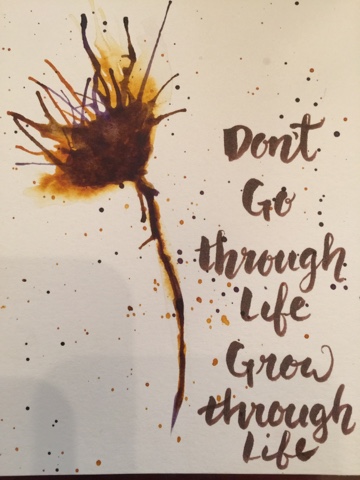 Don't
Go
through
Life
Grow
through
Life